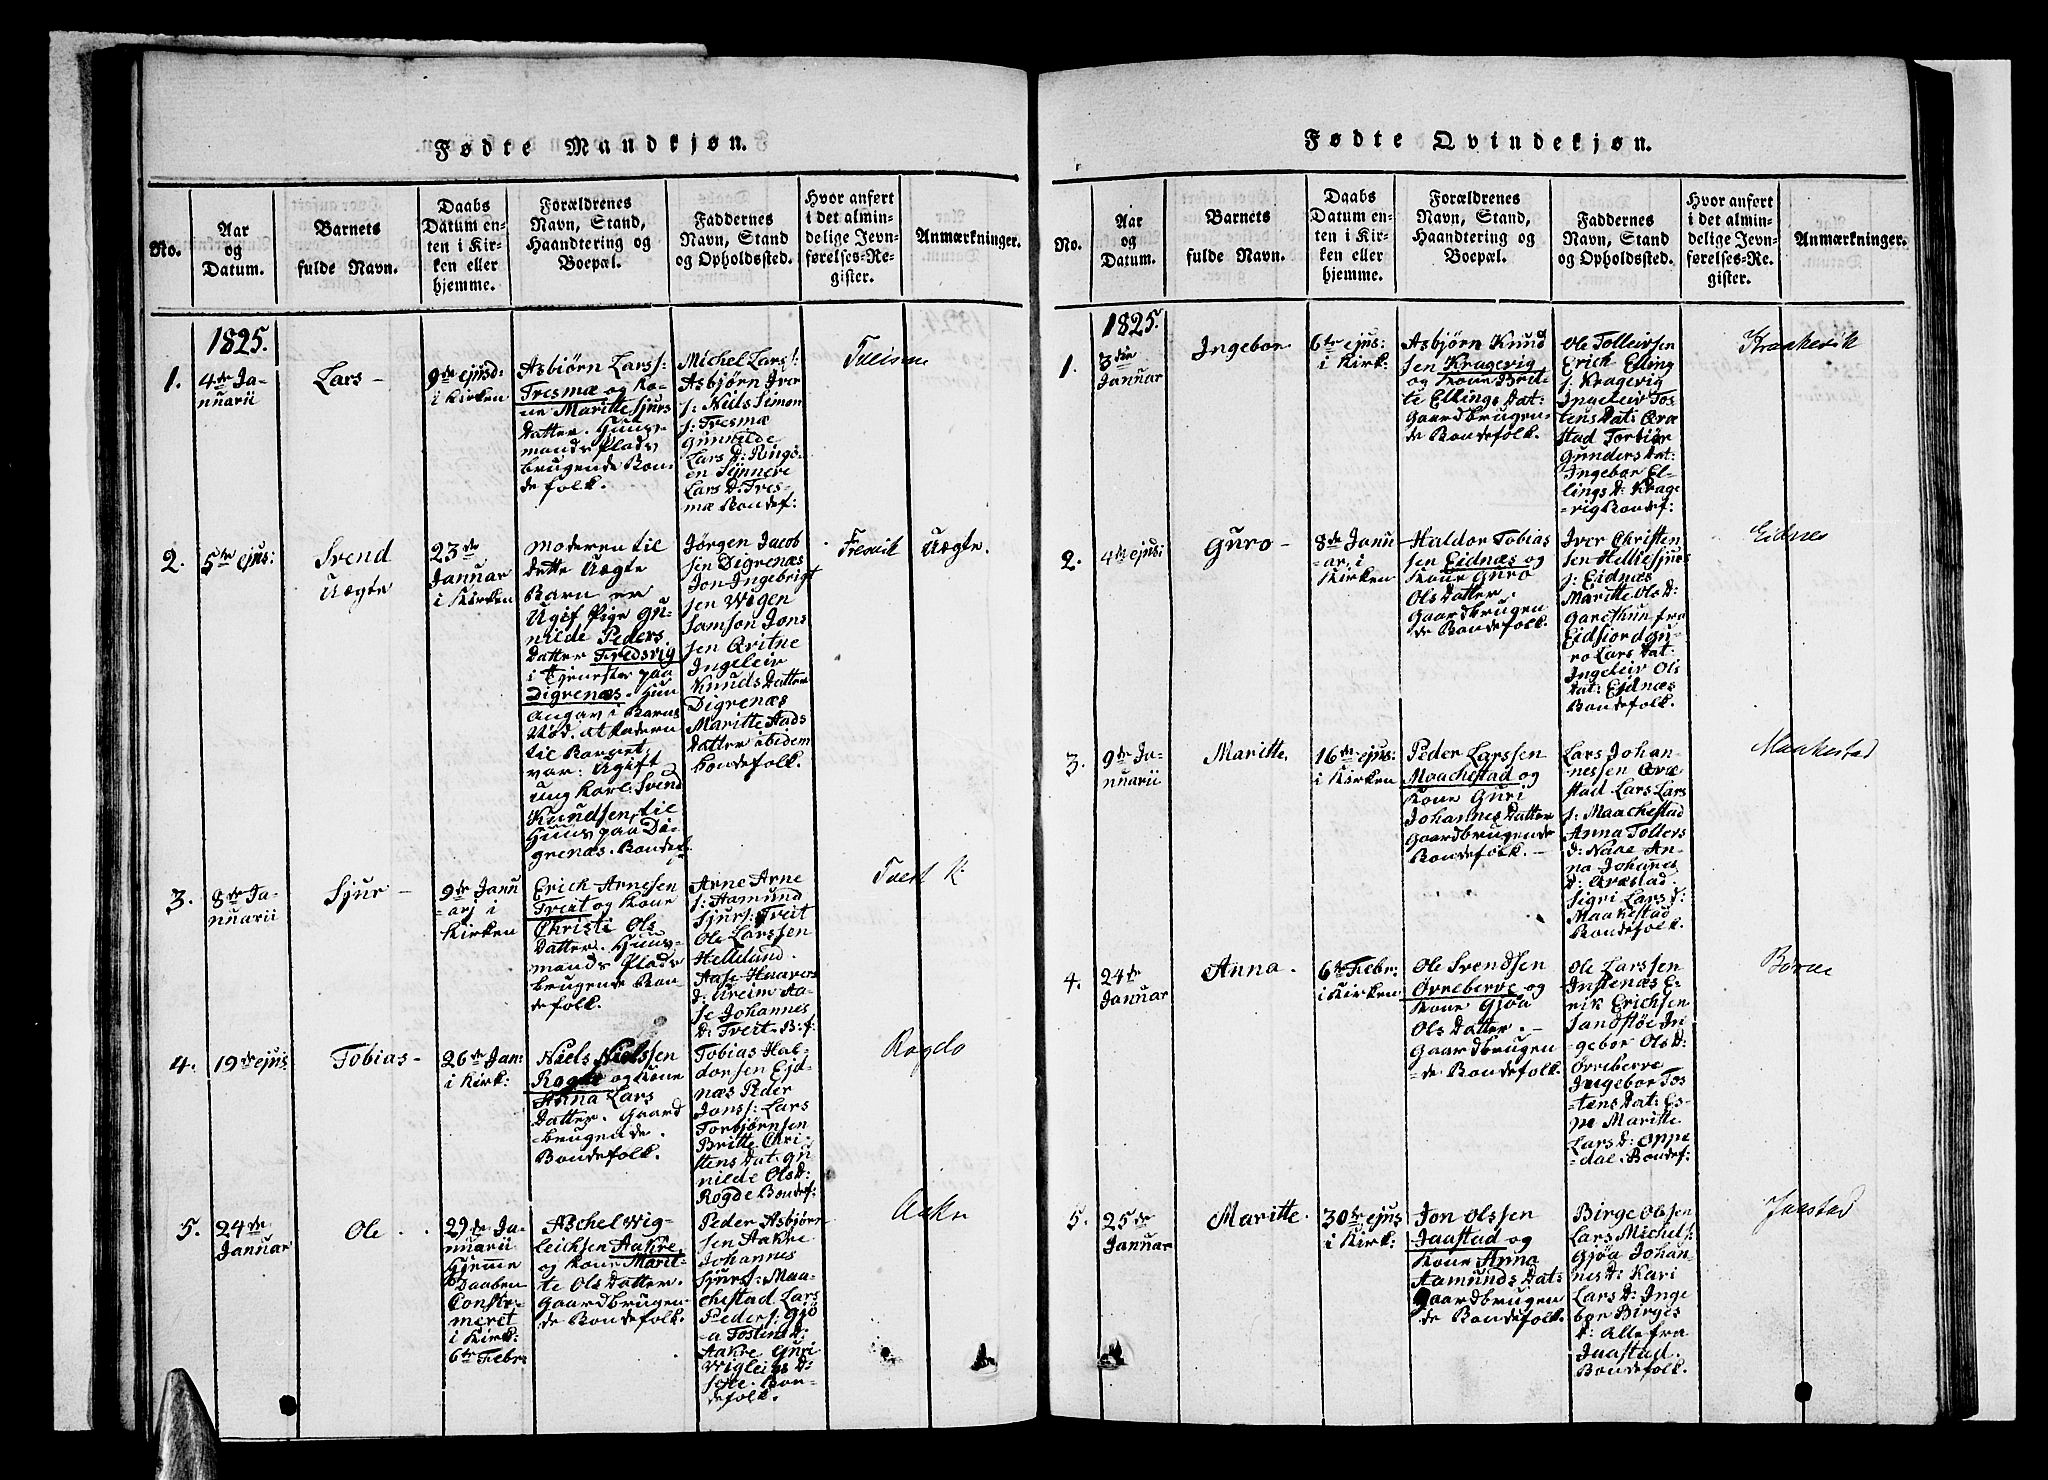 Fødte Mandkjøn.
No.
Aar
og
Datum.
Barnets
fulde Navn.
Daabs
Datum en-
ten i Kir-
ken eller
hjemme.
Forældrenes
Navn, Stand,
Haandtering og
Boepæl.
Faddernes
Navn, Stand
og Opholdssted.
Hvor anført
i det almin-
delige Jevn-
førelses-Re-
gister.
Anmærkninger.
1825.
1.
4de Ja-
nuarii
Lars-
9de ejusd:
i Kirken
Asbiørn Larss:
Tresmæ og Ko-
ne Maritte Sjurs
Datter. Huus-
mands Plads
brugende Bon-
de folk.
Michel Lars s:
Asbjørn Iver
s: Niels Simon
s: Tresmæ
Gunnilde
Lars D: Rings-
en Synneve
Lars D: Tres-
mæ Bondef:
2.
5te ejus:
Svend
Uægte
23de
Januar
i Kirken
Moderen til
dette Uægte
Barn er
Ugif Pige Gu-
nilde Peders
Datter Tredsvig
i Tjeneste paa
Digrenæs. Hun
angav i Barns
Nød. at Faderen
til Barnet
var: Ugift
ung Karl: Svend
Knudsen, til
Huus paa Di-
grenæs. Bondef:
Jørgen Jacob
sen Digrenæs
Jon Ingebrigt
sen Wigen
Samson Jons
sen Qvitne
Ingeleir
Knuds Datter
Digrenæs
Maritte Aads
Datter ibidem
bondefolk.
Uægte.
3.
8de Ja-
nuarii
Sjur-
9de Janu
-arj i
Kirken
Erick Arnesen
Treit og Kone
Christi Ols
Datter. Huus-
mands Plads
brugende Bon
defolk.
Arne Arne
s: Aamund
Sjurs: Treit
Ole Larssen
Helleland.
Aase Haavor
d: Ureim Aa-
se Johannes
D: Treit. B: f:
4.
19de ejus
Tobias-
26de Jan:
i Kirk:
Niels Nielssen
Rogde og Kone
Anna Lars
Datter. Gaard
-brugende.
Bondefolk.
Tobias Hal-
dorsen Ejd-
næs Peder
Jonss: Lars
Torbjørnsen
Britte Chri-
stens Dat: Gu
nilde Ols D:
Rogde Bondef:
Rogde
5.
24de
Januar
Ole
29de Ja-
nuarii
Hjemme
Daaben
Confir-
meret
i Kirk:
6te Febr:
Aschel Wig-
leichsen Aakre
og Kone Marit-
te Ols Datter.
Gaardbrugen-
de Bondefolk.
Peder Asbjørn
sen Aakre
Johannes
Sjurs: Maa-
chestad Lars
Peders: Gjö
a Tosten D:
Aakre Guri
Wigleigs D:
Bon-
defolk.
Aakre
Fødte Qvindekjøn.
No.
Aar
og
Datum.
Barnets
fulde Navn.
Daabs
Datum en-
ten i Kir-
ken eller
hjemme.
Forældrenes
Navn, Stand,
Haandtering og
Boepæl.
Faddernes
Navn, Stand
og Opholdssted.
Hvor anført
i det almin-
delige Jevn-
førelses-Re-
gister.
Anmærkninger.
1825.
1.
3die
Januar
Ingebor
6te ejus:
i Kirk:
Asbjørn Knud
sen Kragevig
og Kone Brit-
te Ellings Dat:
Gaardbrugen-
de Bondefolk.
Ole Tolleivsen
Erich Elling
s: Kragevig
Ingeleiv Tos-
tens Dat: Qræ
stad Torbiør
Gunders Dat:
Ingebor El-
lings D: Krage
-vig Bondef:
Kraakevik
2.
4de ejus:
Guro-
8de Janu
-ar, i
Kirken
Haldor Tobias
sen Eidnæs og
Kone Guro
Ols Datter
Gaardbrugen
de Bondefolk.
Iver Christen
sen Hellie Sjurs
s: Eidnæs
Maritte Ols D:
Garethun fra
Eidfiord Gu-
ro Lars Dat:
Ingeleiv Ols
Dat: Ejdnæs
Bondefolk.
Eidnes
3.
9de Ja-
nuarii
Maritte.
16de ejus:
i Kirken
Peder Larssen
Maachestad og
Kone Guri
Johannes Datter
Gaardbrugende
Bondefolk. -
Lars Johan-
nessen Qræ
stad Lars Lars
s: Maachestad
Anna Tollevs
d: Naae An-
na Johannes
d: Qræstad
Sigri Lars D:
Maakestad
Bondefolk.
Maakestad
4.
24de
Januar
Anna.
6te Febr:
i Kirken
Ole Svendsen
Øvreberve og
Kone Gjøa
Ols Datter. -
Gaardbrugen
-de Bondefolk.
Ole Larssen
Instenæs E-
rik Erichsen
Sandstøe In
gebor Ols D:
Øvreberve
Ingebor Tos
-tens Dat: Es-
pe Maritte
Lars D: Oppe
-dal. Bondef:
5.
25de
Januar
Maritte.
30te ejus
i Kirk:
Jon Olssen
Jaastad og
Kone Anna
Aamunds Dat:
Gaardbrugen
de Bondefolk.
Birge Olsen
Lars Michels:
Gjøa Johan-
nes D: Kari
Lars D: Inge
bor Birges
d: Alle fra
Jaastad.
Bondefolk.
Jaastad